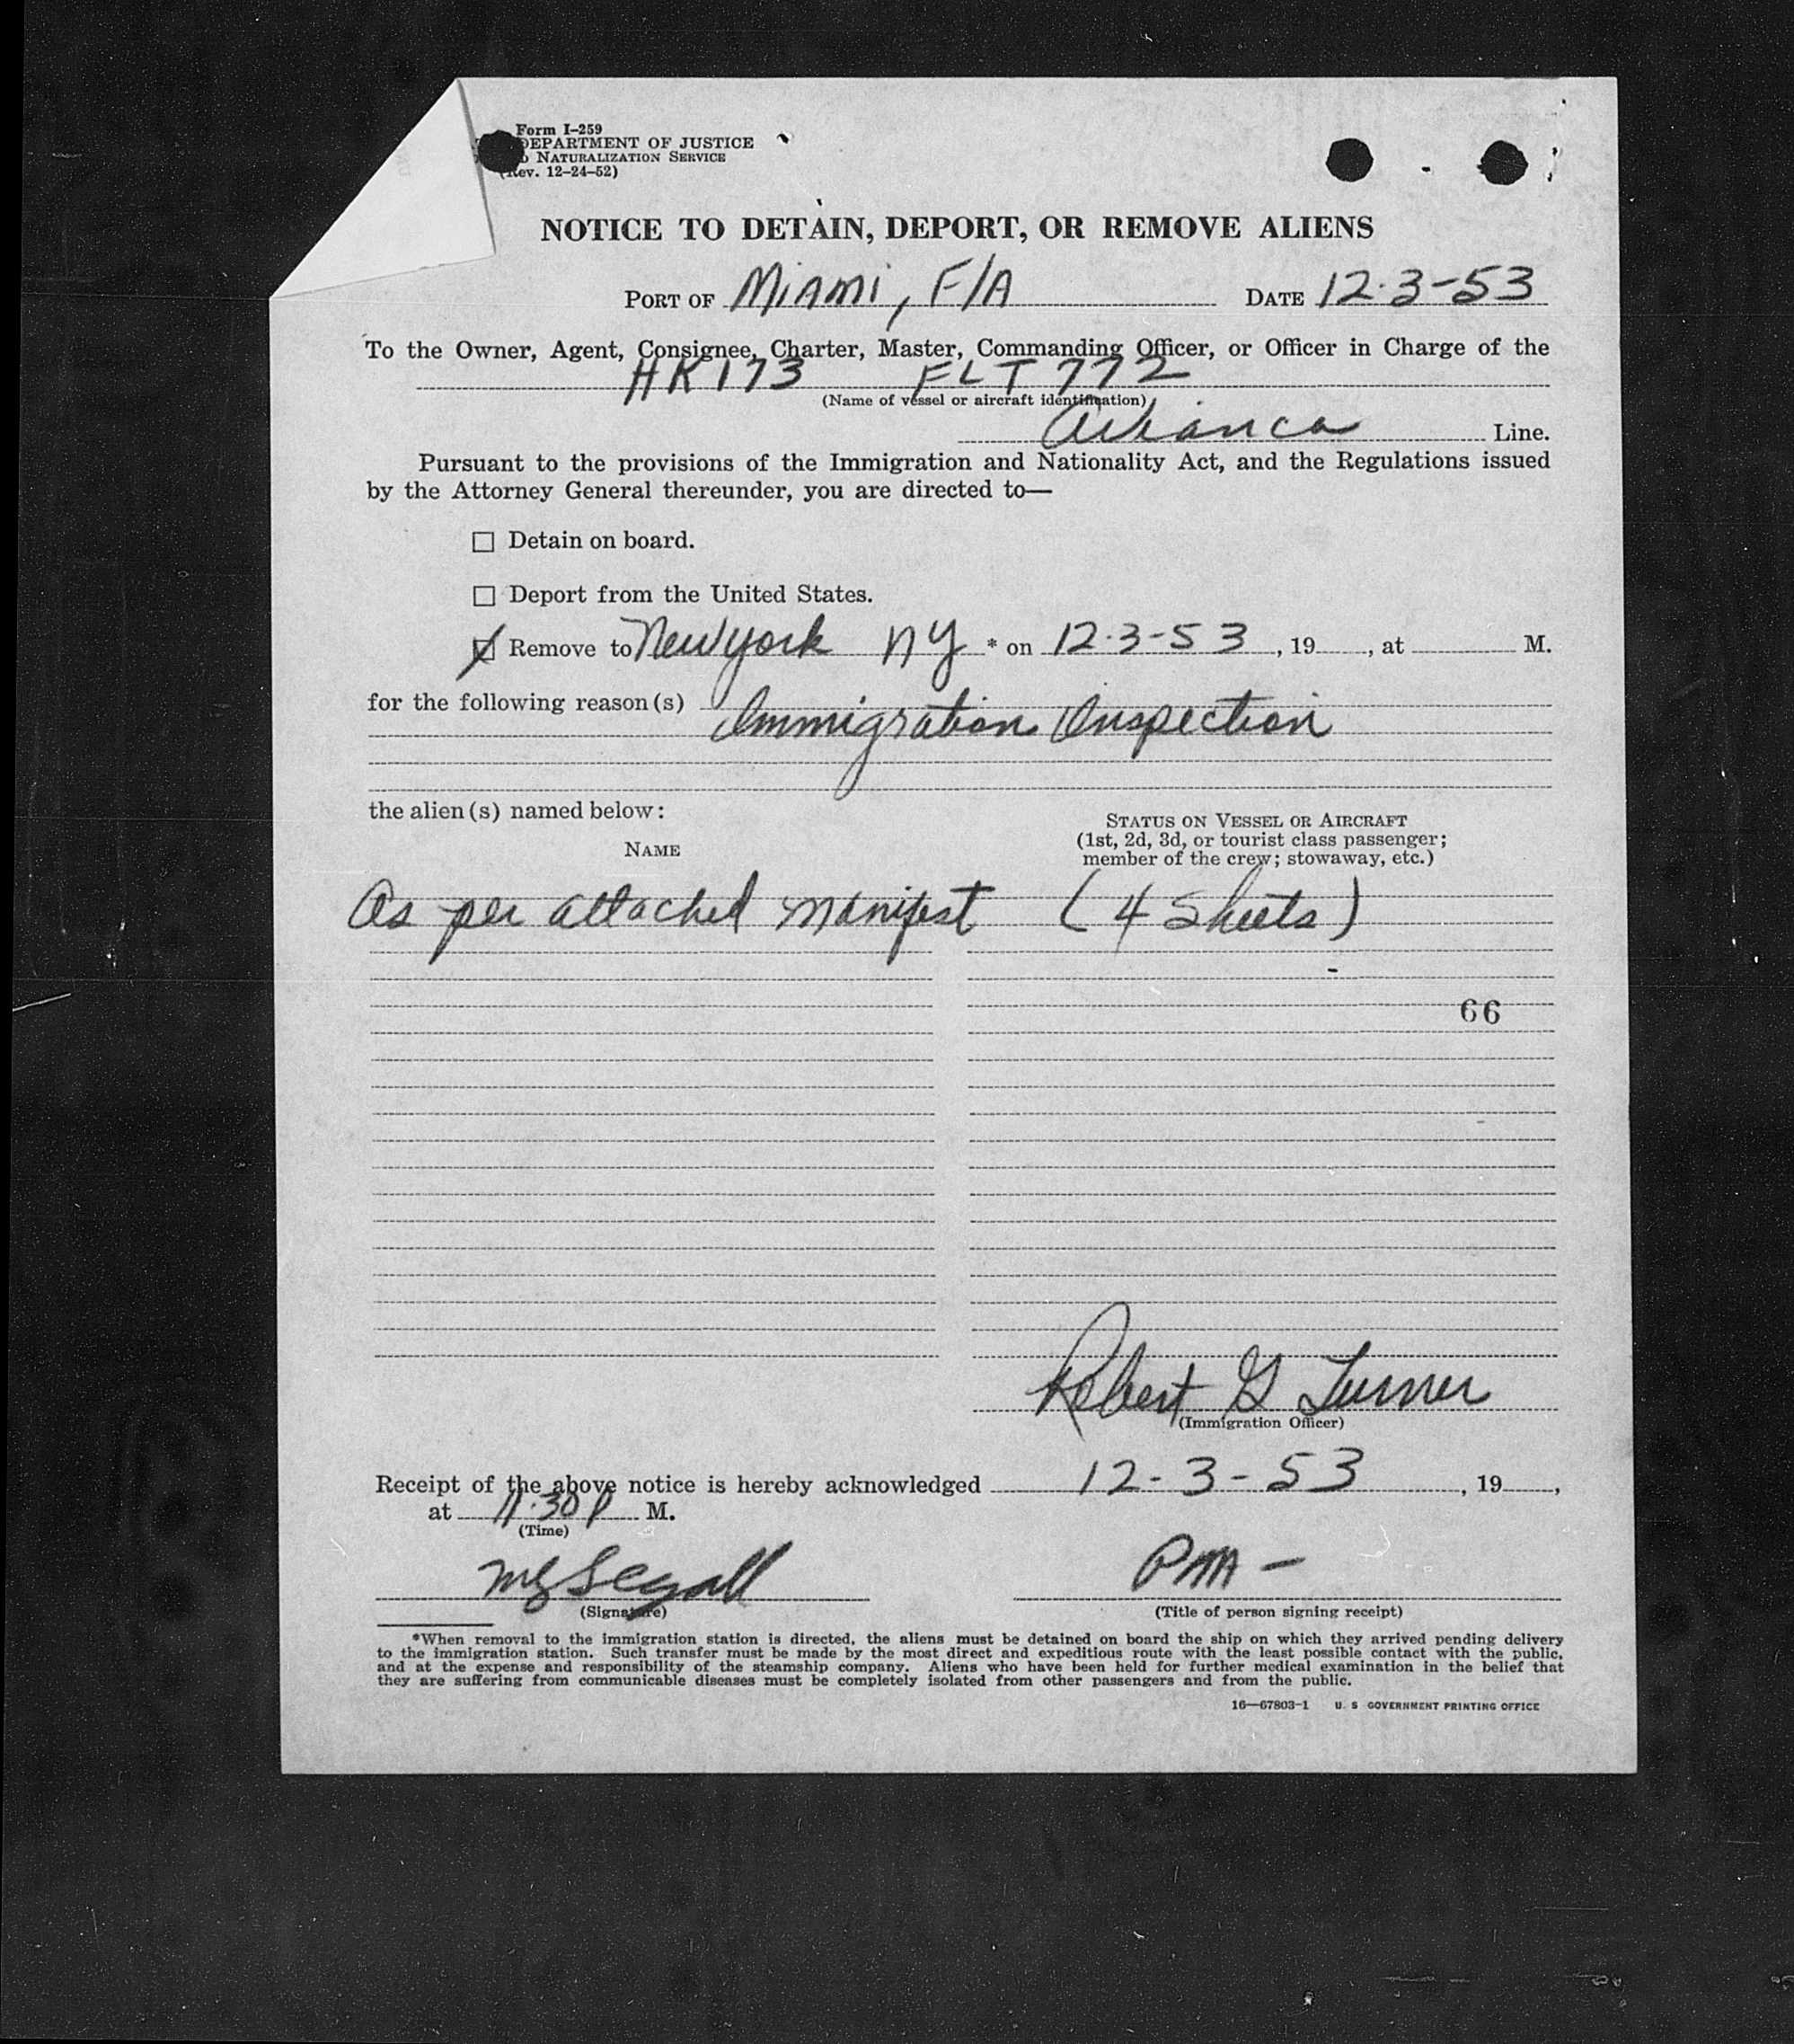 Form I-259
DEPARTMENT OF JUSTICE
NATURALIZATION SERVICE
(Rev. 12-24-52)
NOTICE TO DETAIN, DEPORT, OR REMOVE ALIENS
PORT OF Miami, Fla DATE 12-3-53
To the Owner, Agent, Consignee, Charter, Master, Commanding Officer, or Officer in Charge of the
HK173 FLT 772
(Name of vessel or aircraft identification)
Avianca Line.
Pursuant to the provisions of the Immigration and Nationality Act, and the Regulations issued
by the Attorney General thereunder, you are directed to—
☐ Detain on board.
☐ Deport from the United States.
☒ Remove to New york NY * on 12-3-53, 19___, at ______ M.
for the following reason(s)
Immigration Inspection
the alien(s) named below:
NAME
STATUS ON VESSEL OR AIRCRAFT
(1st, 2d, 3d, or tourist class passenger;
member of the crew; stowaway, etc.)
As per attached manifest (4 Sheets)
66
Robert G Turner
(Immigration Officer)
Receipt of the above notice is hereby acknowledged 12-3-53, 19___,
at 11:30 P M.
(Time)
Segall
(Signature)
(Title of person signing receipt)
*When removal to the immigration station is directed, the aliens must be detained on board the ship on which they arrived pending delivery
to the immigration station. Such transfer must be made by the most direct and expeditious route with the least possible contact with the public,
and at the expense and responsibility of the steamship company. Aliens who have been held for further medical examination in the belief that
they are suffering from communicable diseases must be completely isolated from other passengers and from the public.
16—67803-1 U. S GOVERNMENT PRINTING OFFICE